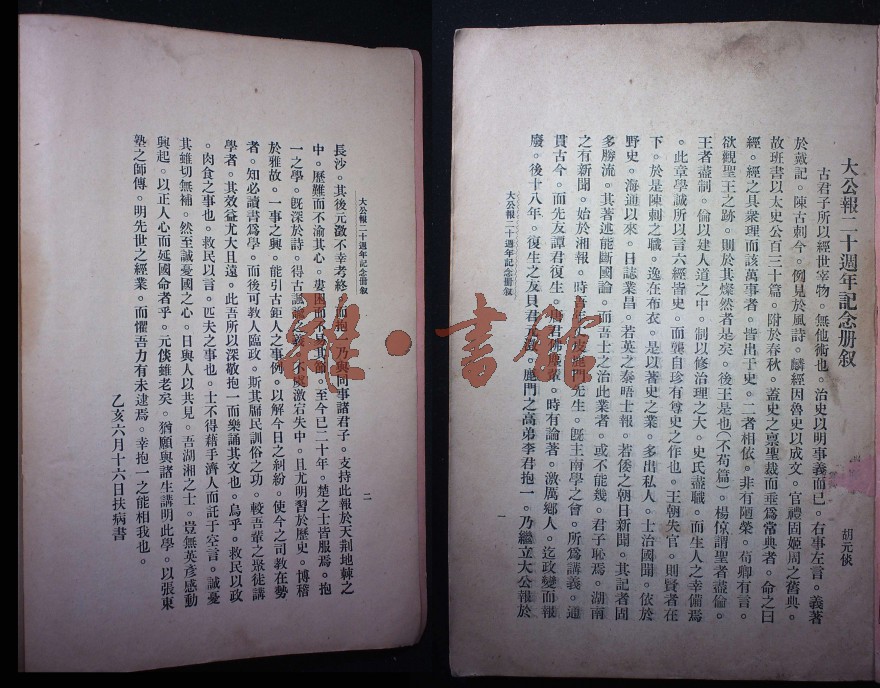 大公報二十週年記念册叙
胡元倓
古君子所以經世宰物。無他術也。治史以明事義而已。右事左言。義著
於戴記。陳古刺今。例見於風詩。麟經因魯史以成文。官禮固姬周之舊典。
故班書以太史公百三十篇。附於春秋。蓋史之稟聖裁而垂為常典者。命之曰
經。經之具衆理而該萬事者。皆出于史。二者相依。非有陋榮。荀卿有言。
欲觀聖王之跡。則於其燦然者是矣。後王是也(不苟篇)。楊倞謂聖者盡倫。
王者盡制。倫以建人道之中。制以修治理之大。史氏盡職。而生人之幸備焉
。此章學誠所以言六經皆史。而龔自珍有尊史之作也。王朝失官。則賢者在
下。於是陳刺之職。逸在布衣。是以著史之業。多出私人。士治國聞。依於
野史。海通以來。日誌業昌。若英之泰晤士報。若倭之朝日新聞。其記者固
多勝流。其著述能斷國論。而吾士之治此業者。或不能幾。君子恥焉。湖南
之有新聞。始於湘報。時吾師皮鹿門先生。旣主南學之會。所為講義。通
貫古今。而先友譚君復生。唐君紱丞輩。時有論著。激厲鄉人。迄政變而報
廢。後十八年。復生之友貝君元澂。鹿門之高弟李君抱一。乃繼立大公報於
大公報二十週年記念册叙
一
大公報二十週年記念册叙
二
長沙。其後元澂不幸考終。而抱一乃與同事諸君子。支持此報於天荆地棘之
中。歷難而不渝其心。婁困而不易其節。至今已二十年。楚之士皆服焉。抱
一之學。旣深於詩。得古諷諭之義。不以激宕失中。且尤明習於歷史。博稽
於雅故。一事之興。能引古鉅人之事例。以解今日之糾紛。使今之司教在勢
者。知必讀書為學。而後可教人臨政。斯其牖民訓俗之功。較吾輩之聚徒講
學者。其效益尤大且遠。此吾所以深敬抱一而樂誦其文也。烏乎。救民以政
。肉食之事也。救民以言。匹夫之事也。士不得藉手濟人而託于空言。誠憂
其雖切無補。然至誠憂國之心。日與人以共見。吾湖湘之士。豈無英彥感動
興起。以正人心而延國命者乎。元倓雖老矣。猶願與諸生講明此學。以張東
塾之師傳。明先世之經業。而懼吾力有未逮焉。幸抱一之能相我也。
乙亥六月十六日扶病書
雜·書館